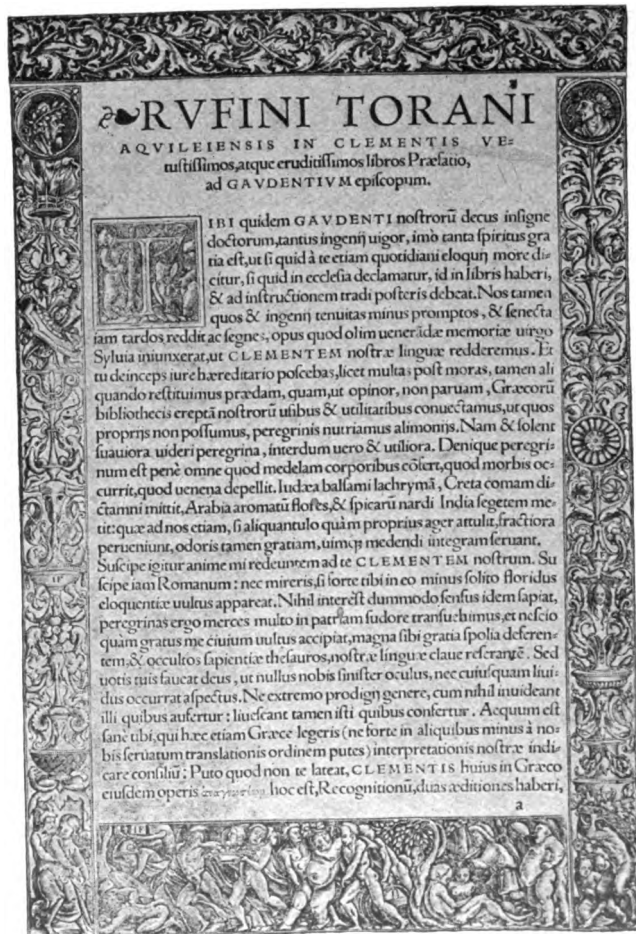 RVFINI TORANI
AQVILEIENSIS IN CLEMENTIS VE-
tustissimos, atque eruditissimos libros Præfatio,
ad GAVDENTIVM episcopum.
TIBI quidem GAVDENTI nostrorũ decus insigne
doctorum, tantus ingenij uigor, imò tanta spiritus gra
tia est, ut si quid à te etiam quotidiani eloquij more di-
citur, si quid in ecclesia declamatur, id in libris haberi,
& ad instructionem tradi posteris debeat. Nos tamen
quos & ingenij tenuitas minus promptos, & senecta
iam tardos reddit ac segnes, opus quod olim uenerãdæ memoriæ uirgo
Syluia iniunxerat, ut CLEMENTEM nostræ linguæ redderemus. Et
tu deinceps iure hæreditario poscebas, licet multas post moras, tamen ali
quando restituimus prædam, quam, ut opinor, non paruam, Græcorũ
bibliothecis ereptã nostrorũ usibus & utilitatibus conuectamus, ut quos
proprijs non possumus, peregrinis nutriamus alimonijs. Nam & solent
suauiora uideri peregrina, interdum uero & utiliora. Denique peregri-
num est penè omne quod medelam corporibus cõfert, quod morbis oc-
currit, quod uenena depellit. Iudæa balsami lachrymã, Creta comam di-
ctamni mittit, Arabia aromatũ flores, & spicarũ nardi India segetem me-
tit: quæ ad nos etiam, si aliquantulo quàm proprius ager attulit, fractiora
perueniunt, odoris tamen gratiam, uimque medendi integram seruant.
Suscipe igitur anime mi redeuntem ad te CLEMENTEM nostrum. Su
scipe iam Romanum: nec mireris, si forte tibi in eo minus solito floridus
eloquentiæ uultus appareat. Nihil interest dummodo sensus idem sapiat,
peregrinas ergo merces multo in patriam sudore transuehimus, et nescio
quam gratus me ciuium uultus accipiat, magna sibi gratia spolia deferen-
tem, & occultos sapientiæ thesauros, nostræ linguæ claue reserantẽ. Sed
uotis tuis faueat deus, ut nullus nobis sinister oculus, nec cuiusquam liui-
dus occurrat aspectus. Ne extremo prodigij genere, cum nihil inuideant
illi quibus aufertur: liuescant tamen isti quibus confertur. Aequum est
sane tibi, qui hæc etiam Græce legeris (ne forte in aliquibus minus à no-
bis seruatum translationis ordinem putes) interpretationis nostræ indi-
care consiliũ; Puto quod non te lateat, CLEMENTIS huius in Græco
eiusdem operis hoc est, Recognitionũ, duas æditiones haberi,
a